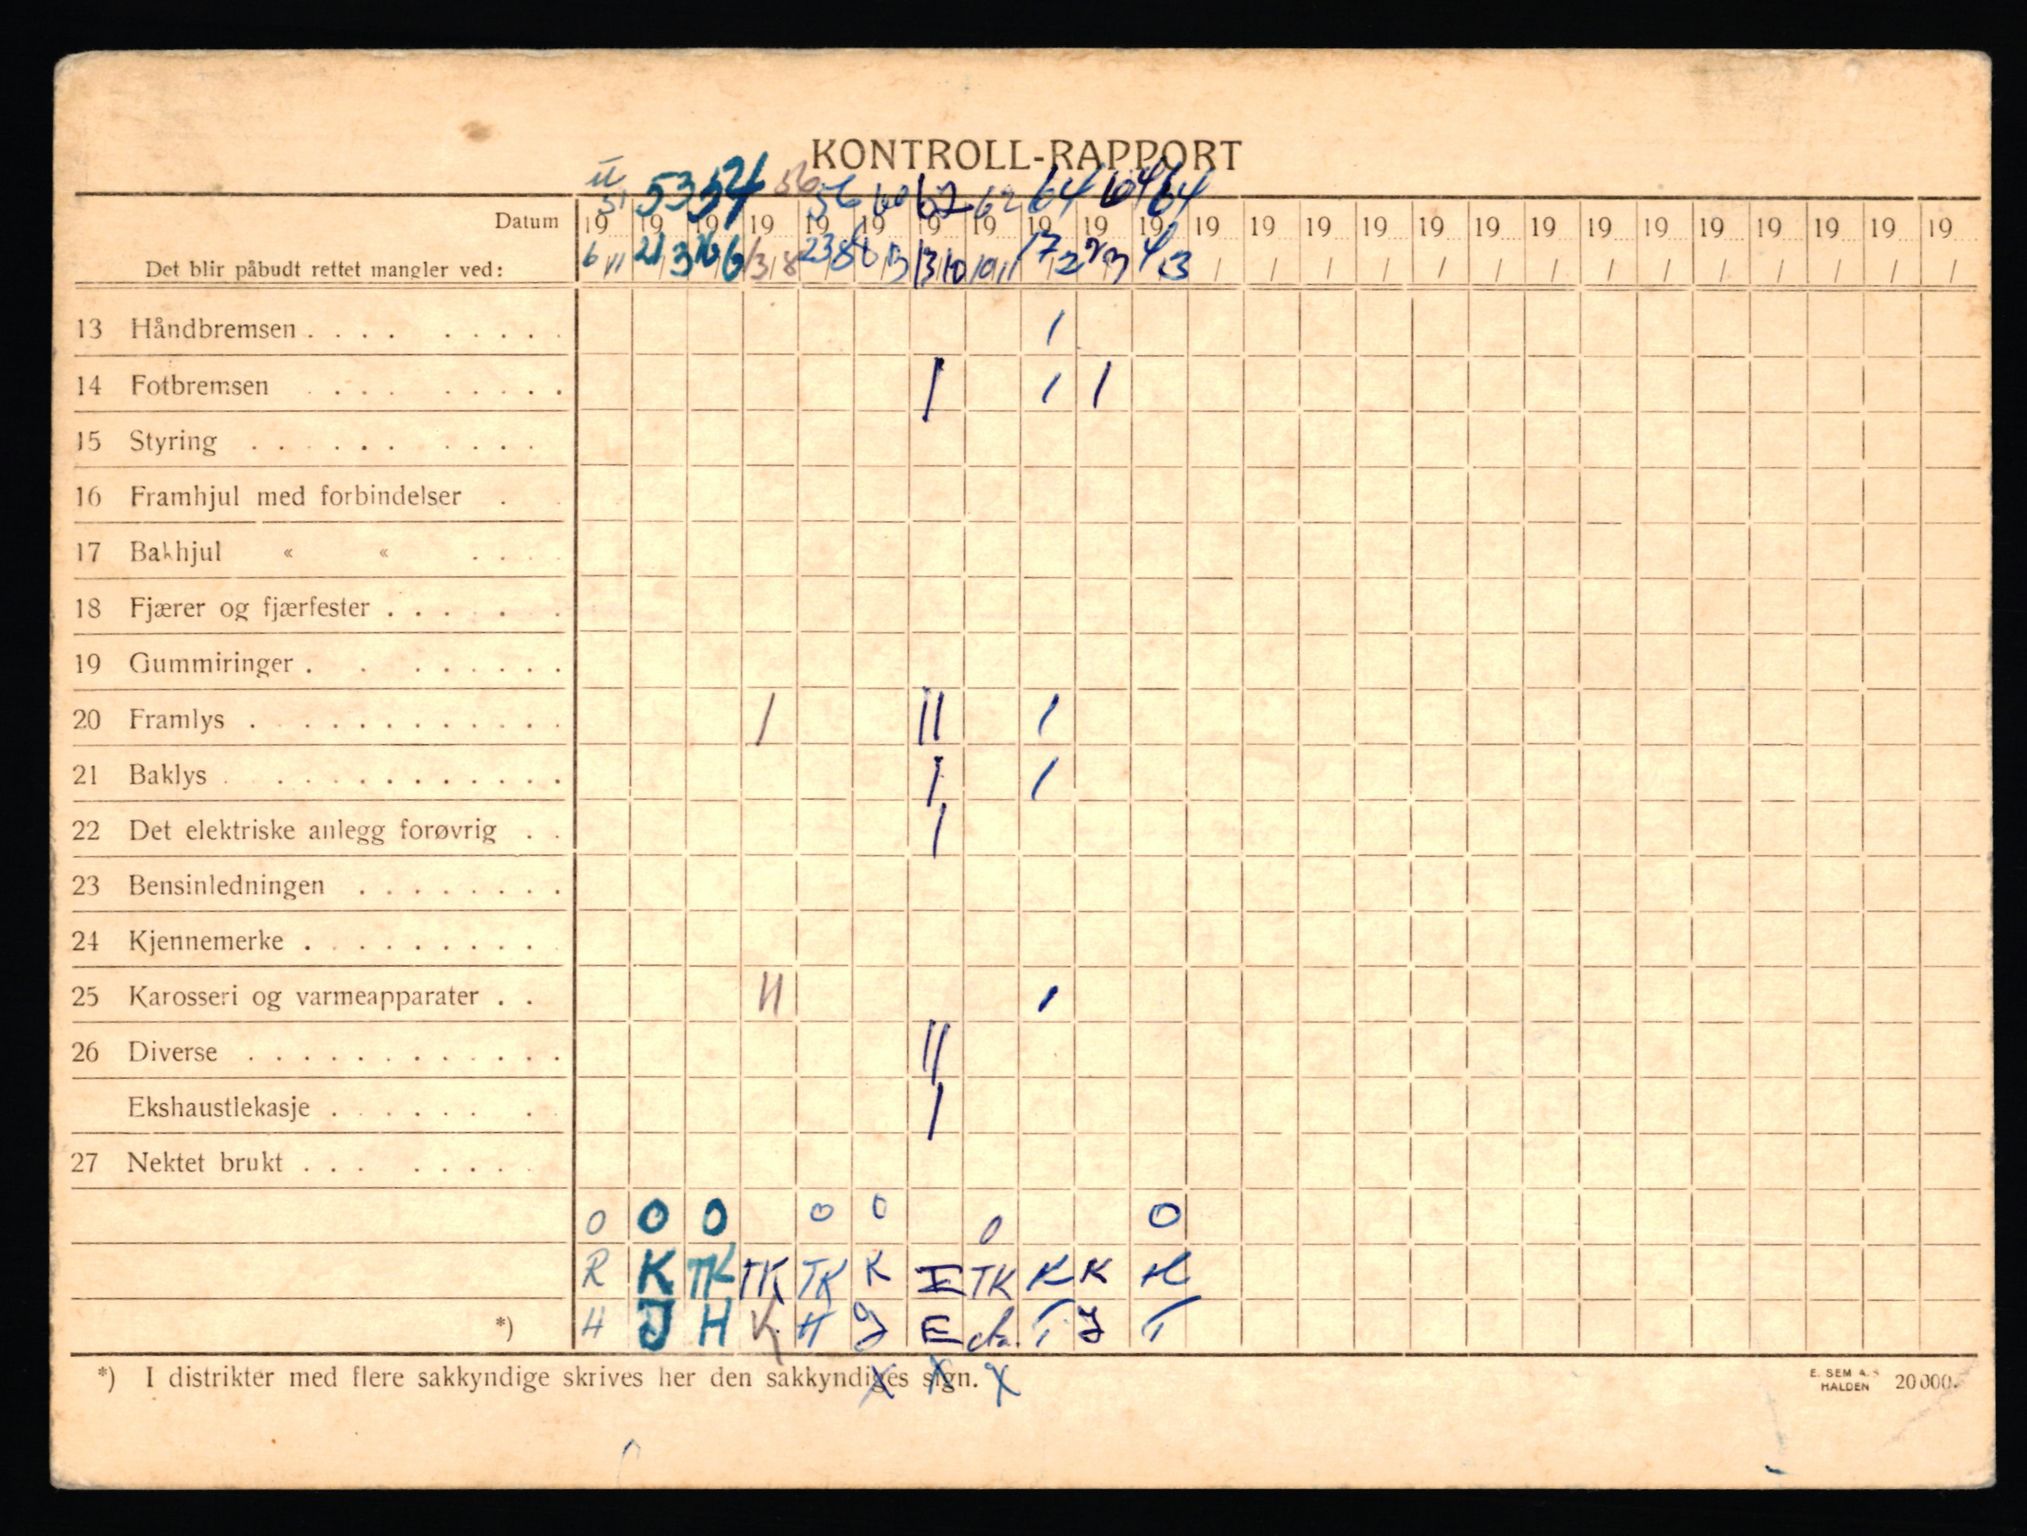 KONTROLL-RAPPORT
51 53 54 56 56 60 62 62 64 64 64
Datum 19 19 19 19 19 19 19 19 19 19 19 19 19 19 19 19 19 19 19 19 19 19 19 19 19
Det blir påbudt rettet mangler ved: 6/11 21/3 16/6 13/8 23/8 13/10 10/11 17/2 4/3
13 Håndbremsen . . . . . . . . . 1
14 Fotbremsen . . . . . . . . . 1 1 1
15 Styring . . . . . . . . . .
16 Framhjul med forbindelser .
17 Bakhjul « « . . . .
18 Fjærer og fjærfester . . . . . .
19 Gummiringer . . . . . . . .
20 Framlys . . . . . . . . . . . . 1 11 1
21 Baklys . . . . . . . . . . . . 1 1
22 Det elektriske anlegg forøvrig . . 1
23 Bensinledningen . . . . . . . .
24 Kjennemerke . . . . . . . . .
25 Karosseri og varmeapparater . . 11 1
26 Diverse . . . . . . . . . . . . 11
Ekshaustlekasje . . . . . . . . 1
27 Nektet brukt . . . . . . . .
0 0 0 0 0 0 0
R K TK TK TK K E TK K K K
*) H J H K H J E T J T
*) I distrikter med flere sakkyndige skrives her den sakkyndiges sign.
x x x
E. SEM A.S
HALDEN 20 000.